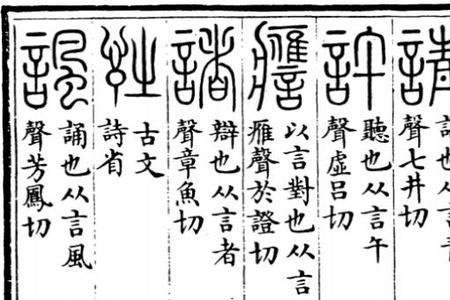 請
聲七井切
許
聽也从言午
聲虛呂切
譍
以言對也从言
雁聲於證切
諸
辯也从言者
聲章魚切
古文
詩省
諷
誦也从言風
聲芳鳳切